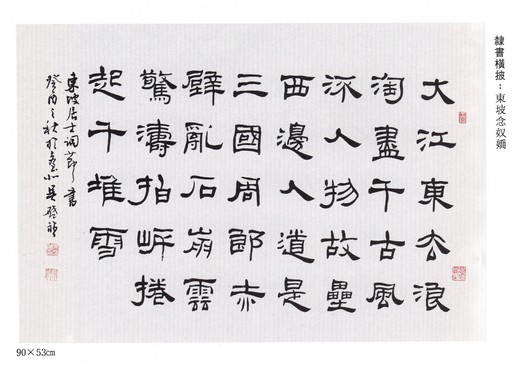 隸書橫披：東坡念奴嬌
大江東去浪
淘盡千古風
流人物故壘
西邊人道是
三國周郎赤
壁亂石崩雲
驚濤拍岸捲
起千堆雪
東坡居士詞節書
之秋於臺北吳
90×53㎝